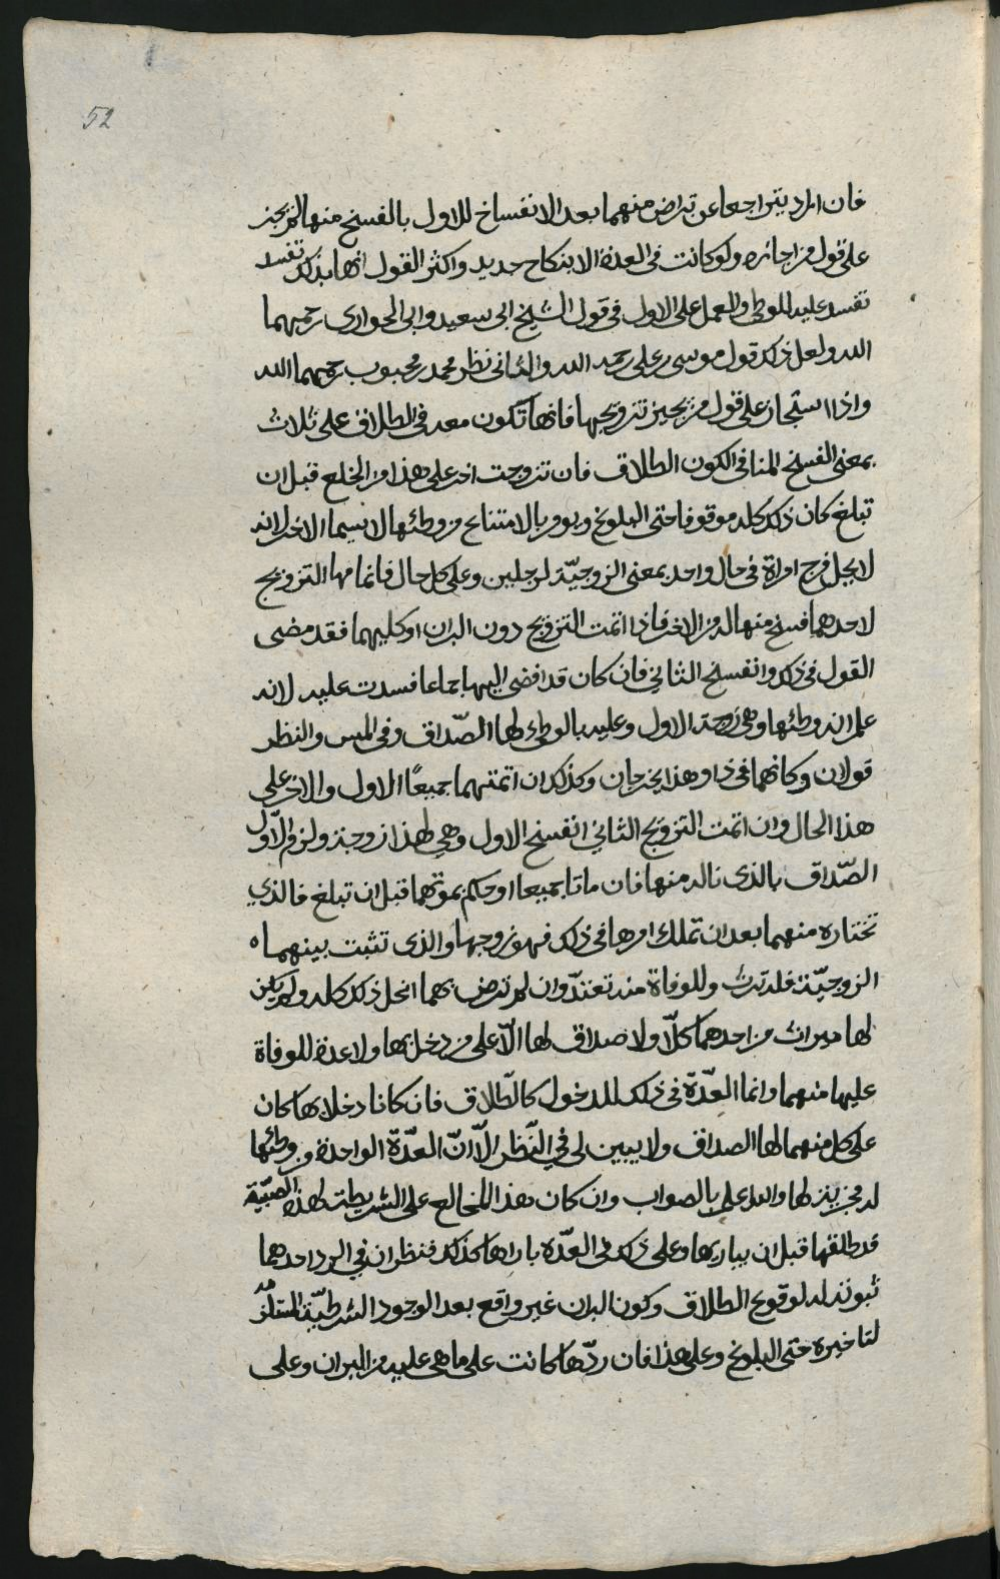 52
فان اراد يتراجعا عن تراض منهما بعد الانفساخ للاول بالفسخ منها لم يجز
على قول من اجازه ولو كانت في العدة الا بنكاح جديد واكثر القول انها بذلك تفسد
تفسد عليه للوطي والعمل على الاول في قول الشيخ ابي سعيد وابي الحواري رحمهما
الله ولعل ذلك قول موسى بن علي رحمه الله والثاني نظر محمد بن محبوب رحمهما الله
واذا استجاز على قول من يجيز تزويجها فانها تكون معه في الطلاق على ثلاث
بمعنى الفسخ المنافي لكون الطلاق فان تزوجت اخر على هذا من الخلع قبل ان
تبلغ كان ذلك كله موقوفا حتى البلوغ ويومر بالامتناع من وطئها لا سيما الاخر لانه
لا يحل فرج امراة في حال واحد بمعنى الزوجيّة لرجلين وعلى كل حال فاتمامها التزويج
لاحدهما فسخ منها له من الاخر فاذا اتمت التزويج دون البران او كليهما فقد مضى
القول في ذلك وانفسخ الثاني فان كان قد افضى اليها جماعا فسدت عليه لانه
علم انه وطئها وهي زوجة الاول وعليه بالوطئ لها الصّداق وفي المس والنظر
قولان وكانهما في ذا وهذا يخرجان وكذلك ان اتمتهما جميعًا الاول والاخر على
هذا الحال وان اتمت التزويج الثاني انفسخ الاول وهي لهذا زوجة ولزم الاّول
الصّداق بالذي ناله منها فان ماتا جميعا او حكم بموتهما قبل ان تبلغ فالذي
تختاره منهما بعد ان تملك امرها في ذلك فهو زوجها والذي تثبت بينهما ه
الزوجيّة فله ترث وللوفاة منه تعتدّ وان لم ترض بهما انحل ذلك كله ولم يكن
لها ميراث من احدهما كلّا ولا صداق لها الّا على من دخل بها ولا عدة للوفاة
عليها منهما وانما العدّة في ذلك للدخول كالّطلاق فان كانا دخلا بها كان
على كل منهما لها الصداق ولا يبين لي في النّظر الّا انّ العدّة الواحدة من وطئها
له مجزية لها والله اعلم بالصواب وان كان هذا المخالع على الشريطة لهذه الصبيّة
قد طلقها قبل ان يباريها وعلى ذلك في العدّه باراها كذلك فنظران في الرد احدهما
ثبوته له لوقوع الطلاق وكون البران غير واقع بعد الوجود الشرطيّة المستلزمة
لتاخيره حتى البلوغ وعلى هذا فان ردّها كانت على ما هي عليه من البران وعلى